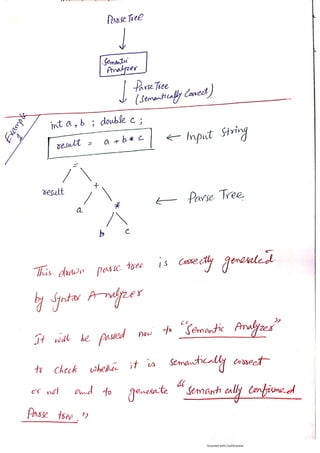 Parse Tree
Semantic
Analyzer
Parse Tree
(Semantically Correct)
Example
1
int a, b ; double c ;
result = a + b * c
← Input String
=
result +
a *
b c
← Parse Tree
This drawn parse tree is correctly generated
by Syntax Analyzer
It will be passed now to "Semantic Analyzer"
to check whether it is semantically correct
or not and to generate "Semantically Confirmed
Parse tree."
Scanned with CamScanner